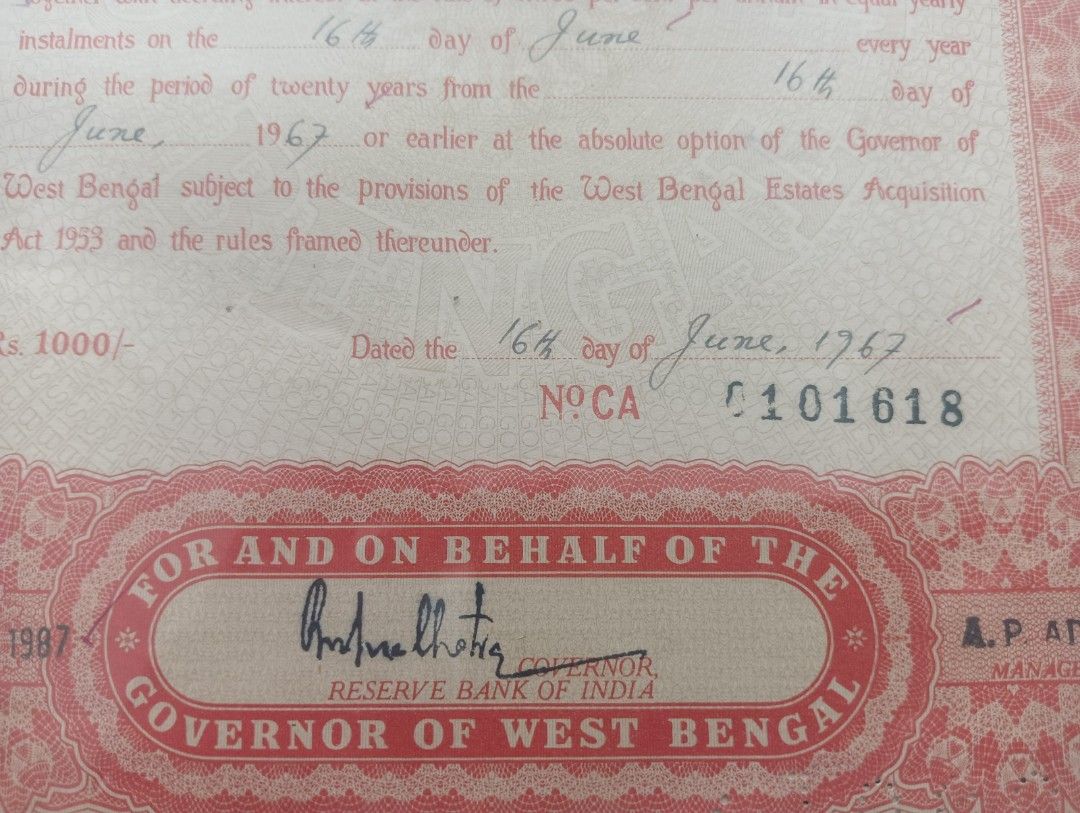 together with accruing interest at the rate of per cent per annum in equal yearly
instalments on the 16th day of June every year
during the period of twenty years from the 16th day of
June, 1967 or earlier at the absolute option of the Governor of
West Bengal subject to the provisions of the West Bengal Estates Acquisition
Act 1953 and the rules framed thereunder.
Rs. 1000/- Dated the 16th day of June, 1967
No. CA 0101618
FOR AND ON BEHALF OF THE
1987
A. P AD
GOVERNOR,
MANAG
RESERVE BANK OF INDIA
GOVERNOR OF WEST BENGAL